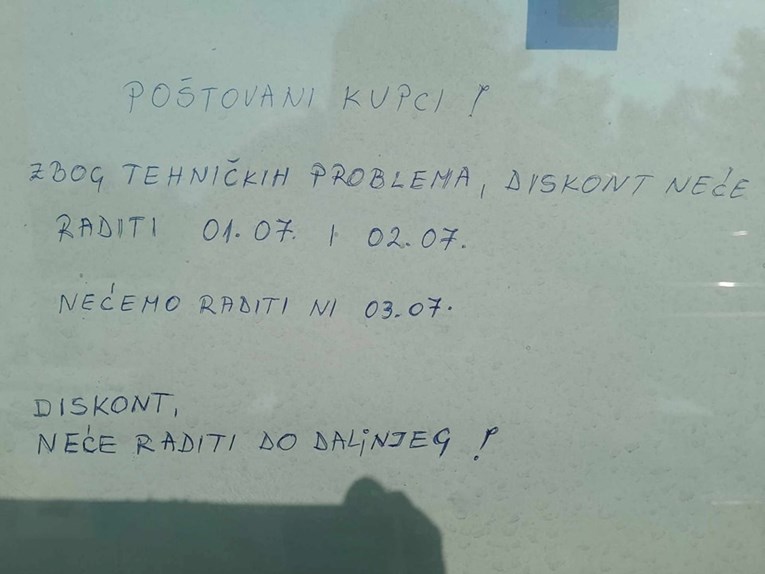 POŠTOVANI KUPCI !
ZBOG TEHNIČKIH PROBLEMA, DISKONT NEĆE
RADITI 01.07. I 02.07.
NEĆEMO RADITI NI 03.07.
DISKONT,
NEĆE RADITI DO DALiNJEG !